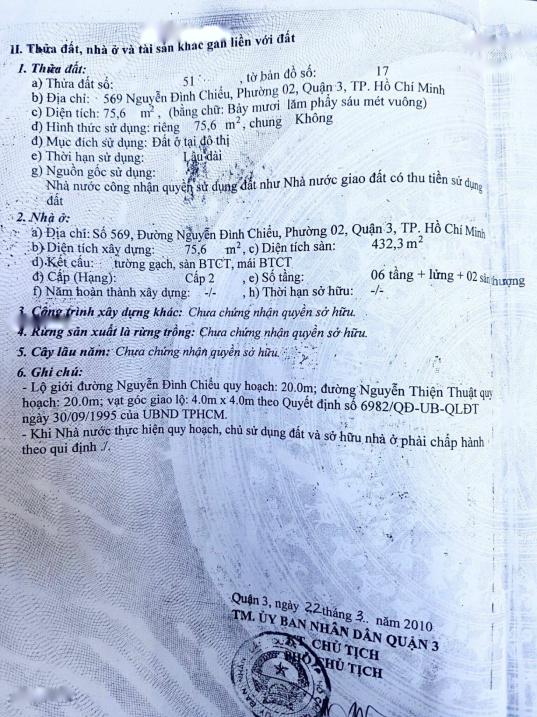 II. Thửa đất, nhà ở và tài sản khác gắn liền với đất
1. Thửa đất:
a) Thửa đất số: 51 , tờ bản đồ số: 17
b) Địa chỉ: 569 Nguyễn Đình Chiểu, Phường 02, Quận 3, TP. Hồ Chí Minh
c) Diện tích: 75,6 m², (bằng chữ: Bảy mươi lăm phẩy sáu mét vuông)
d) Hình thức sử dụng: riêng 75,6 m², chung Không
đ) Mục đích sử dụng: Đất ở tại đô thị
e) Thời hạn sử dụng: Lâu dài
g) Nguồn gốc sử dụng:
Nhà nước công nhận quyền sử dụng đất như Nhà nước giao đất có thu tiền sử dụng
đất
2. Nhà ở:
a) Địa chỉ: Số 569, Đường Nguyễn Đình Chiểu, Phường 02, Quận 3, TP. Hồ Chí Minh
b) Diện tích xây dựng: 75,6 m², c) Diện tích sàn: 432,3 m²
d) Kết cấu: tường gạch, sàn BTCT, mái BTCT
đ) Cấp (Hạng): Cấp 2 , e) Số tầng: 06 tầng + lửng + 02 sân thượng
f) Năm hoàn thành xây dựng: -/- , h) Thời hạn sở hữu: -/-
3. Công trình xây dựng khác: Chưa chứng nhận quyền sở hữu.
4. Rừng sản xuất là rừng trồng: Chưa chứng nhận quyền sở hữu.
5. Cây lâu năm: Chưa chứng nhận quyền sở hữu.
6. Ghi chú:
- Lộ giới đường Nguyễn Đình Chiểu quy hoạch: 20.0m; đường Nguyễn Thiện Thuật quy
hoạch: 20.0m; vạt góc giao lộ: 4.0m x 4.0m theo Quyết định số 6982/QĐ-UB-QLĐT
ngày 30/09/1995 của UBND TPHCM.
- Khi Nhà nước thực hiện quy hoạch, chủ sử dụng đất và sở hữu nhà ở phải chấp hành
theo qui định ./.
Quận 3, ngày 22 tháng 3. năm 2010
TM. ỦY BAN NHÂN DÂN QUẬN 3
KT. CHỦ TỊCH
PHÓ CHỦ TỊCH